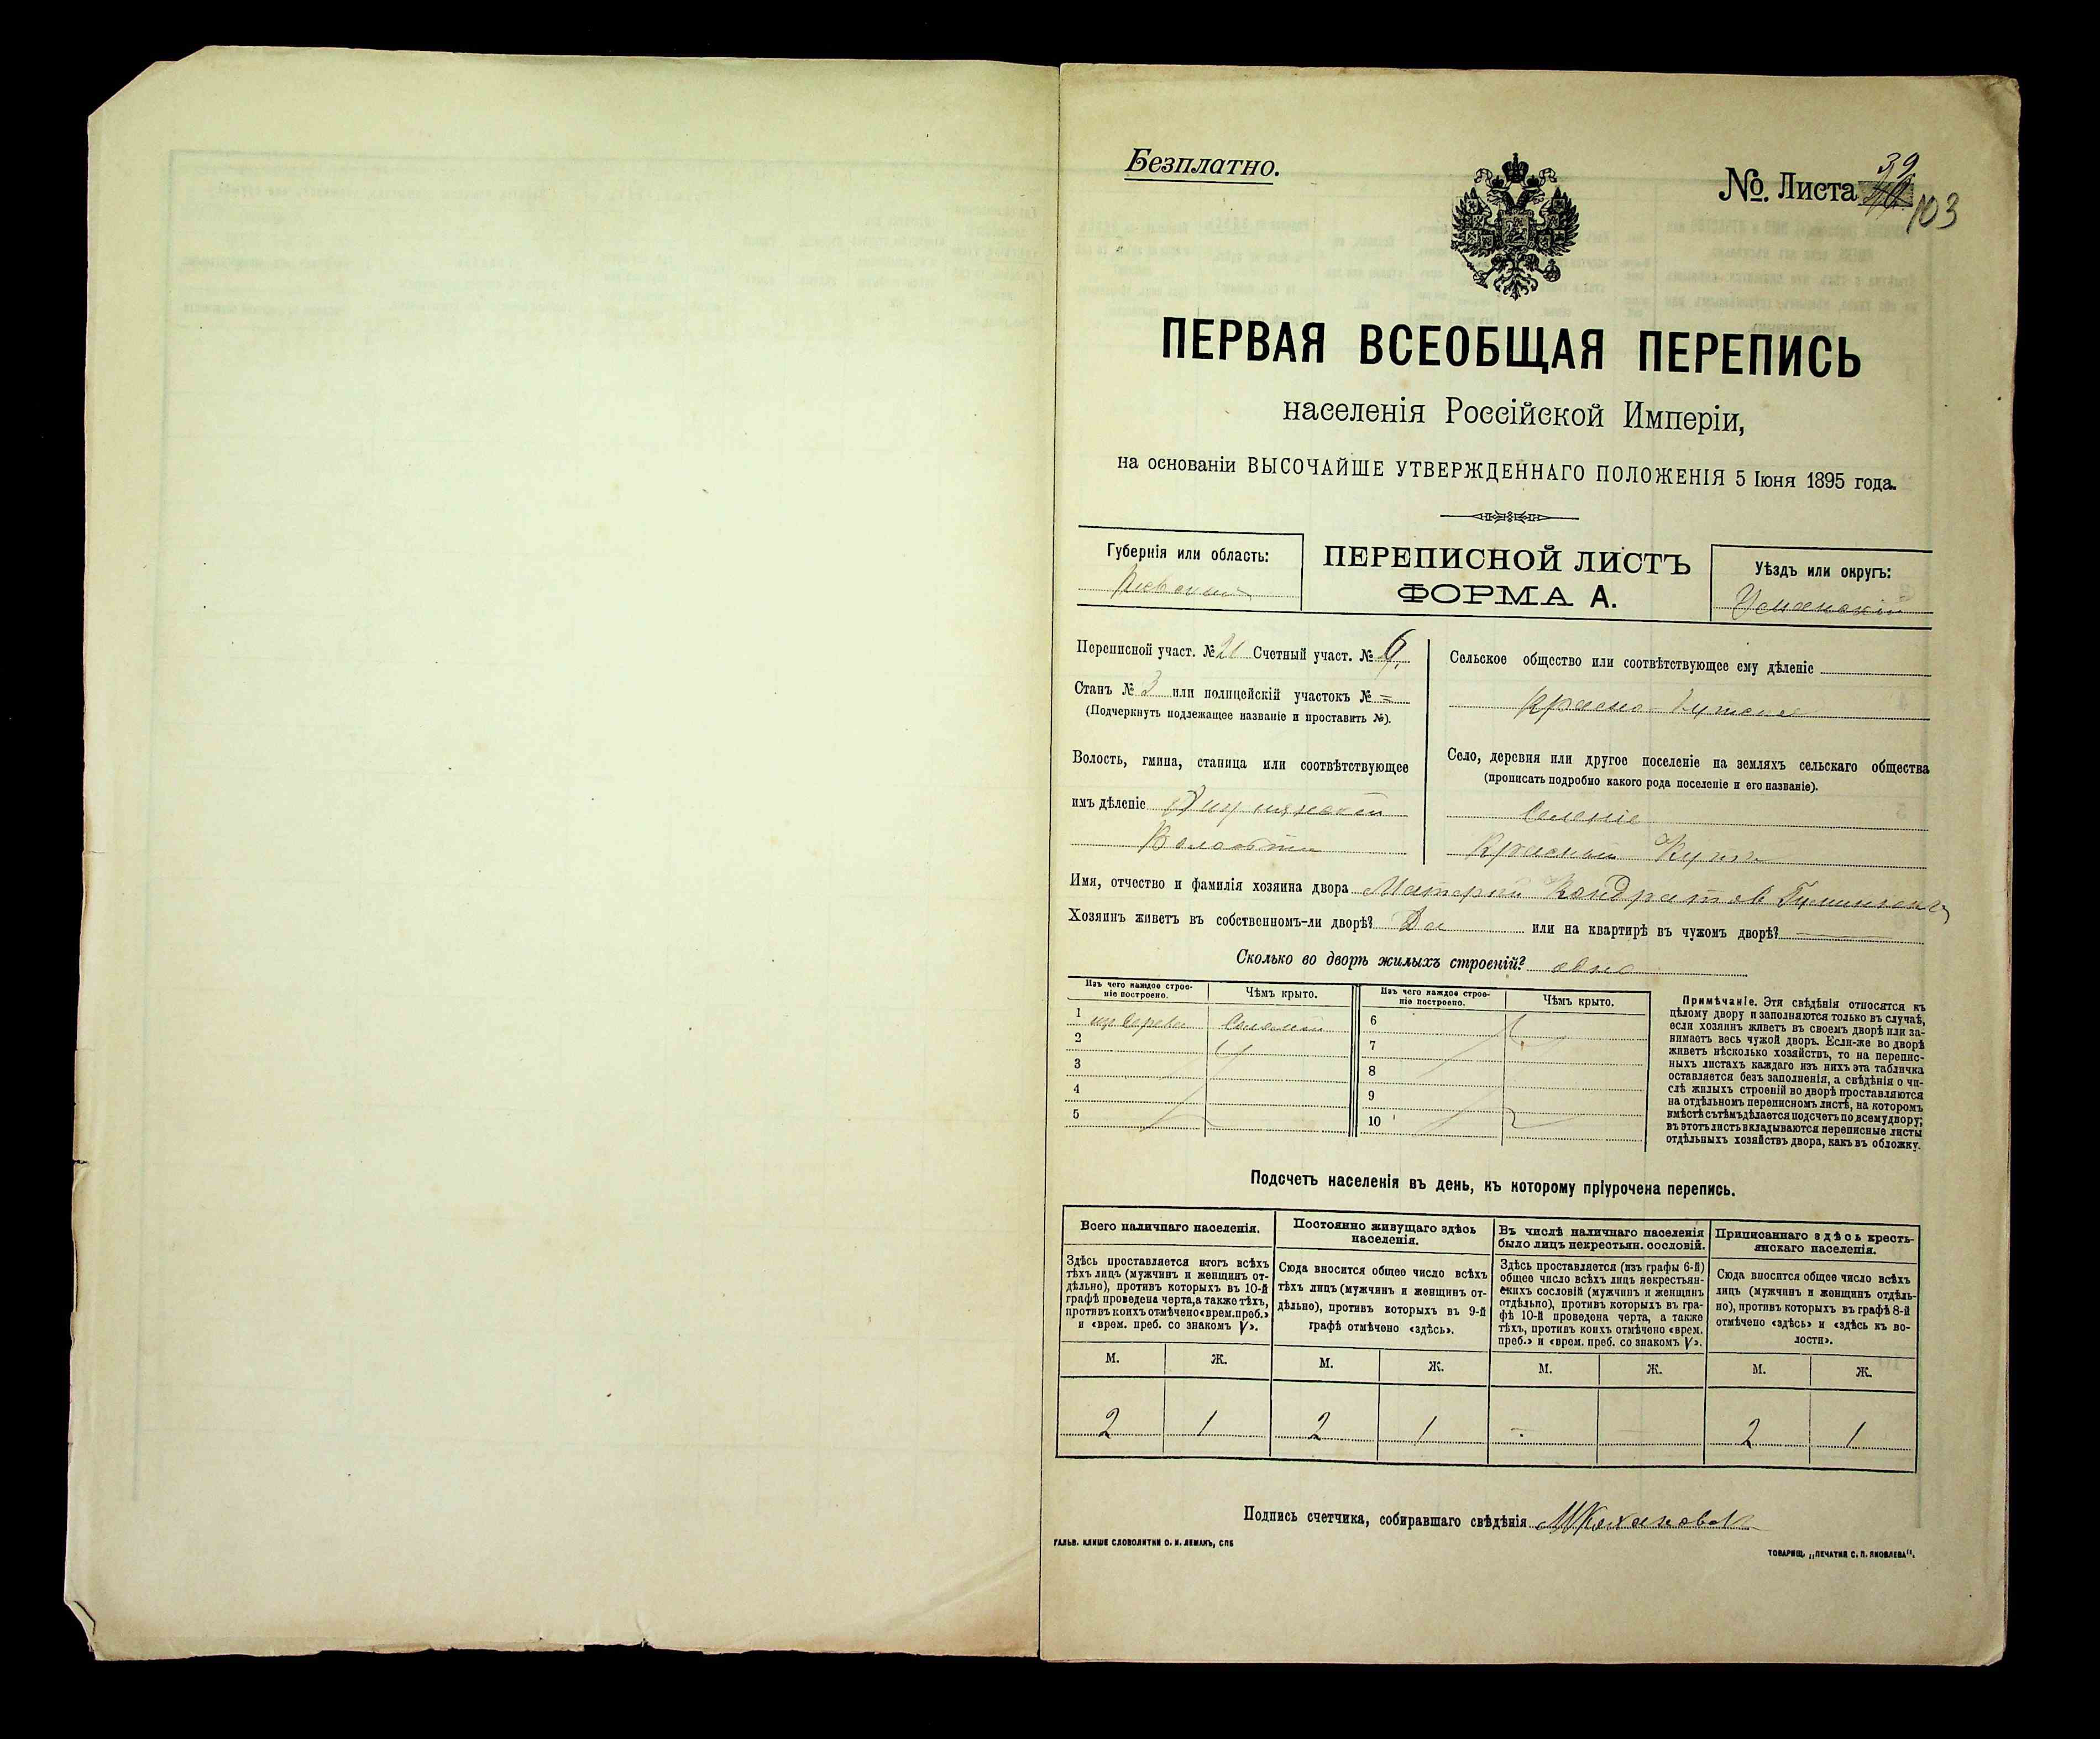 Безплатно.
№. Листа 39
103
ПЕРВАЯ ВСЕОБЩАЯ ПЕРЕПИСЬ
населенія Россійской Имперіи,
на основаніи ВЫСОЧАЙШЕ УТВЕРЖДЕННАГО ПОЛОЖЕНІЯ 5 Іюня 1895 года.
Губернія или область:
Кіевская
ПЕРЕПИСНОЙ ЛИСТЪ
ФОРМА А.
Уѣздъ или округъ:
Уманскій
Переписной участ. № 21 Счетный участ. №
Станъ № 3 или полицейскій участокъ № =
(Подчеркнуть подлежащее названіе и проставить №).
Волость, гмина, станица или соотвѣтствующее
имъ дѣленіе
Волости
Сельское общество или соотвѣтствующее ему дѣленіе
Красно-Кутское
Село, деревня или другое поселеніе на земляхъ сельскаго общества
(прописать подробно какого рода поселеніе и его названіе).
Селеніе
Красный Кутъ
Имя, отчество и фамилія хозяина двора Кондратовъ
Хозяинъ живетъ въ собственномъ-ли дворѣ? Да или на квартирѣ въ чужомъ дворѣ? —
Сколько во дворѣ жилыхъ строеній? одно
Изъ чего каждое строеніе построено.
Чѣмъ крыто.
Изъ чего каждое строеніе построено.
Чѣмъ крыто.
1 изъ дерева Соломой
2
3
4
5
6
7
8
9
10
Примѣчаніе. Эти свѣдѣнія относятся къ
цѣлому двору и заполняются только въ случаѣ,
если хозяинъ живетъ въ своемъ дворѣ или за-
нимаетъ весь чужой дворъ. Если-же во дворѣ
живетъ нѣсколько хозяйствъ, то на перепис-
ныхъ листахъ каждаго изъ нихъ эта табличка
оставляется безъ заполненія, а свѣдѣнія о чи-
слѣ жилыхъ строеній во дворѣ проставляются
на отдѣльномъ переписномъ листѣ, на которомъ
вмѣстѣ съ тѣмъ дѣлается подсчетъ по всему двору;
въ этотъ листъ вкладываются переписные листы
отдѣльныхъ хозяйствъ двора, какъ въ обложку.
Подсчетъ населенія въ день, къ которому пріурочена перепись.
Всего наличнаго населенія.
Здѣсь проставляется итогъ всѣхъ
тѣхъ лицъ (мужчинъ и женщинъ от-
дѣльно), противъ которыхъ въ 10-й
графѣ проведена черта, а также тѣхъ,
противъ коихъ отмѣчено «врем. преб.»
и «врем. преб. со знакомъ V».
Постоянно живущаго здѣсь
населенія.
Сюда вносится общее число всѣхъ
тѣхъ лицъ (мужчинъ и женщинъ от-
дѣльно), противъ которыхъ въ 9-й
графѣ отмѣчено «здѣсь».
Въ числѣ наличнаго населенія
было лицъ некрестьян. сословій.
Здѣсь проставляется (изъ графы 6-й)
общее число всѣхъ лицъ некрестьян-
скихъ сословій (мужчинъ и женщинъ
отдѣльно), противъ которыхъ въ гра-
фѣ 10-й проведена черта, а также
тѣхъ, противъ коихъ отмѣчено «врем.
преб.» и «врем. преб. со знакомъ V».
Приписаннаго здѣсь кресть-
янскаго населенія.
Сюда вносится общее число всѣхъ
лицъ (мужчинъ и женщинъ отдѣль-
но), противъ которыхъ въ графѣ 8-й
отмѣчено «здѣсь» и «здѣсь къ во-
лости».
М. Ж. М. Ж. М. Ж. М. Ж.
2 1 2 1 - — 2 1
Подпись счетчика, собиравшаго свѣдѣнія
ГАЛЬВ. КЛИШЕ СЛОВОЛИТНИ О. И. ЛЕМАНЪ, СПБ
ТОВАРИЩ. „ПЕЧАТНЯ С. П. ЯКОВЛЕВА".